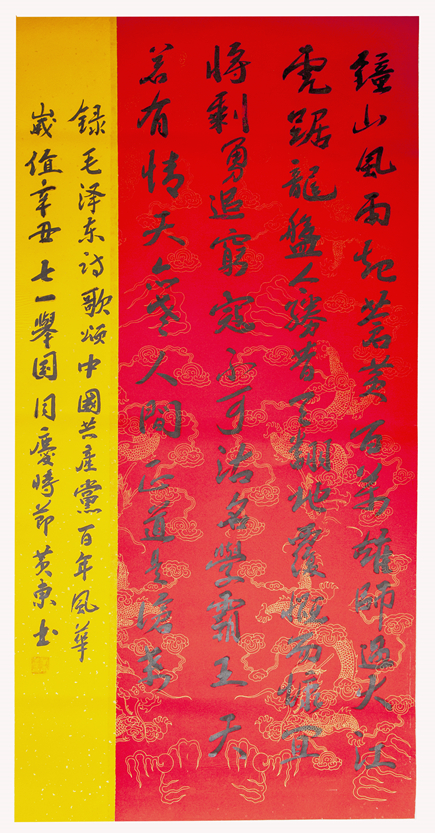 鐘山風雨起蒼黄百萬雄師過大江
虎踞龍盤今勝昔天翻地覆慨而慷宜
將剩勇追窮寇不可沽名學霸王天
若有情天亦老人間正道是滄桑
録毛泽东诗歌颂中國共產黨百年风華
歲值辛丑七一舉国同慶時節黄東书